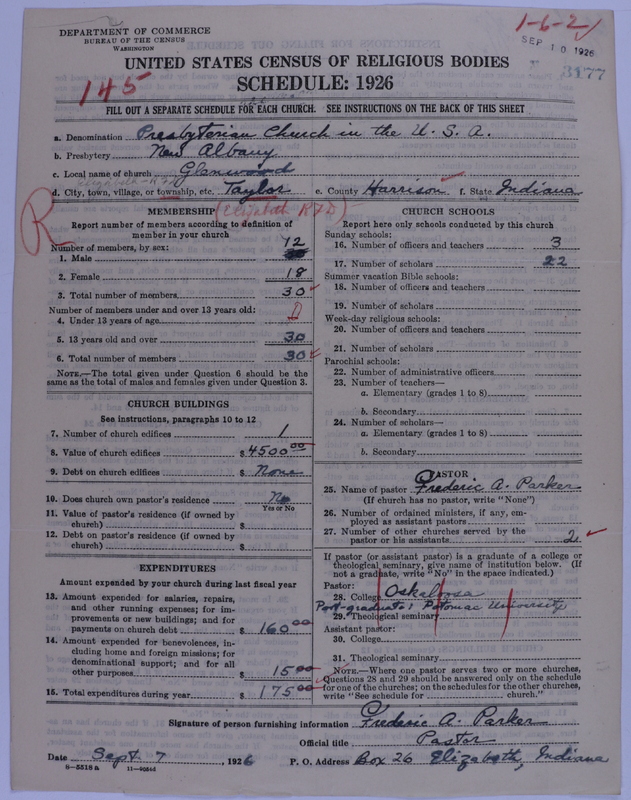 DEPARTMENT OF COMMERCE
BUREAU OF THE CENSUS
WASHINGTON
1-6-2
SEP 10 1926
3177
UNITED STATES CENSUS OF RELIGIOUS BODIES
SCHEDULE: 1926
145
FILL OUT A SEPARATE SCHEDULE FOR EACH CHURCH. SEE INSTRUCTIONS ON THE BACK OF THIS SHEET
a. Denomination Presbyterian Church in the U. S. A.
b. Presbytery New Albany
c. Local name of church Glenwood
Elizabeth R.F.D.
d. City, town, village, or township, etc. Taylor e. County Harrison f. State Indiana
R
(Elizabeth R.F.D.)
MEMBERSHIP
Report number of members according to definition of
member in your church
Number of members, by sex:
1. Male 12
2. Female 18
3. Total number of members 30
Number of members under and over 13 years old:
4. Under 13 years of age 0
5. 13 years old and over 30
6. Total number of members 30
NOTE.—The total given under Question 6 should be
the same as the total of males and females given under Question 3.
CHURCH BUILDINGS
See instructions, paragraphs 10 to 12
7. Number of church edifices 1
8. Value of church edifices $4500.00
9. Debt on church edifices $ None
10. Does church own pastor's residence No
Yes or No
11. Value of pastor's residence (if owned by
church) $
12. Debt on pastor's residence (if owned by
church) $
EXPENDITURES
Amount expended by your church during last fiscal year
13. Amount expended for salaries, repairs,
and other running expenses; for im-
provements or new buildings; and for
payments on church debt $ 160.00
14. Amount expended for benevolences, in-
cluding home and foreign missions; for
denominational support; and for all
other purposes $ 15.00
15. Total expenditures during year $ 175.00
CHURCH SCHOOLS
Report here only schools conducted by this church
Sunday schools:
16. Number of officers and teachers 3
17. Number of scholars 22
Summer vacation Bible schools:
18. Number of officers and teachers
19. Number of scholars
Week-day religious schools:
20. Number of officers and teachers
21. Number of scholars
Parochial schools:
22. Number of administrative officers
23. Number of teachers—
a. Elementary (grades 1 to 8)
b. Secondary
24. Number of scholars—
a. Elementary (grades 1 to 8)
b. Secondary
PASTOR
25. Name of pastor Frederic A. Parker
(If church has no pastor, write "None")
26. Number of ordained ministers, if any, em-
ployed as assistant pastors
27. Number of other churches served by the
pastor or his assistants 2
If pastor (or assistant pastor) is a graduate of a college or
theological seminary, give name of institution below. (If
not a graduate, write "No" in the space indicated.)
Pastor:
28. College Oskaloosa
Post-graduate: Potomac University
29. Theological seminary
Assistant pastor:
30. College
31. Theological seminary
NOTE.—Where one pastor serves two or more churches,
Questions 28 and 29 should be answered only on the schedule
for one of the churches; on the schedules for the other churches,
write "See schedule for church."
Signature of person furnishing information Frederic A. Parker
Official title Pastor
Date Sept. 7, 1926 P. O. Address Box 26 Elizabeth, Indiana
8-5518a 11-90544